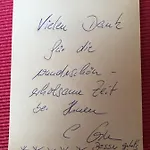 Vielen Dank
für die
wunderschön -
erholsame Zeit
bei Ihnen
C.